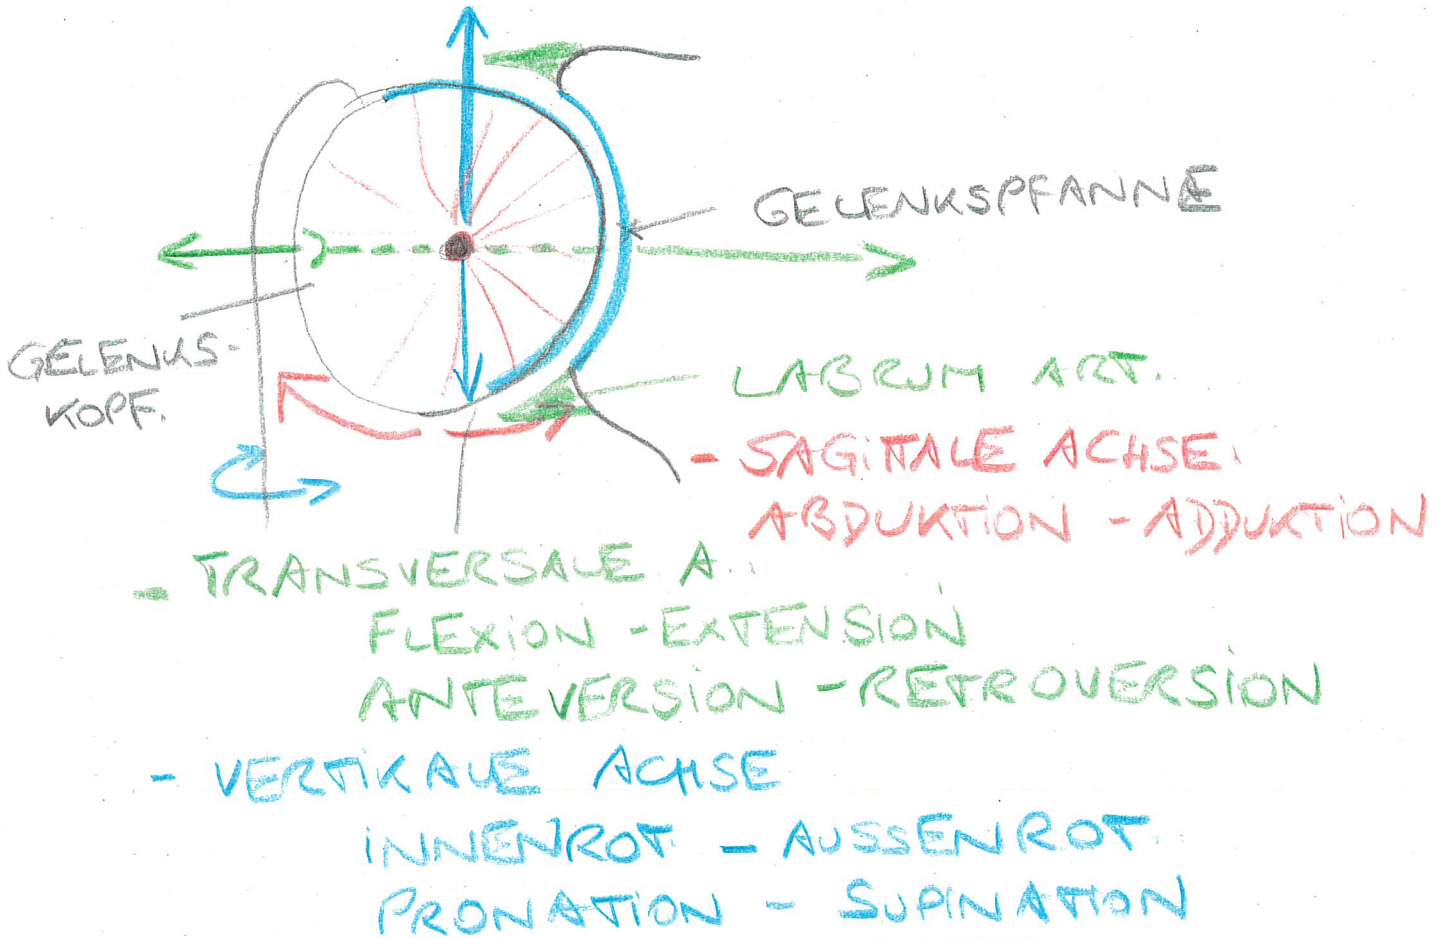 GELENKSPFANNE
GELENKS-
KOPF.
LABRUM ART.
- SAGITTALE ACHSE.
ABDUKTION - ADDUKTION
- TRANSVERSALE A.:
FLEXION - EXTENSION
ANTEVERSION - RETROVERSION
- VERTIKALE ACHSE
INNENROT. - AUSSENROT.
PRONATION - SUPINATION